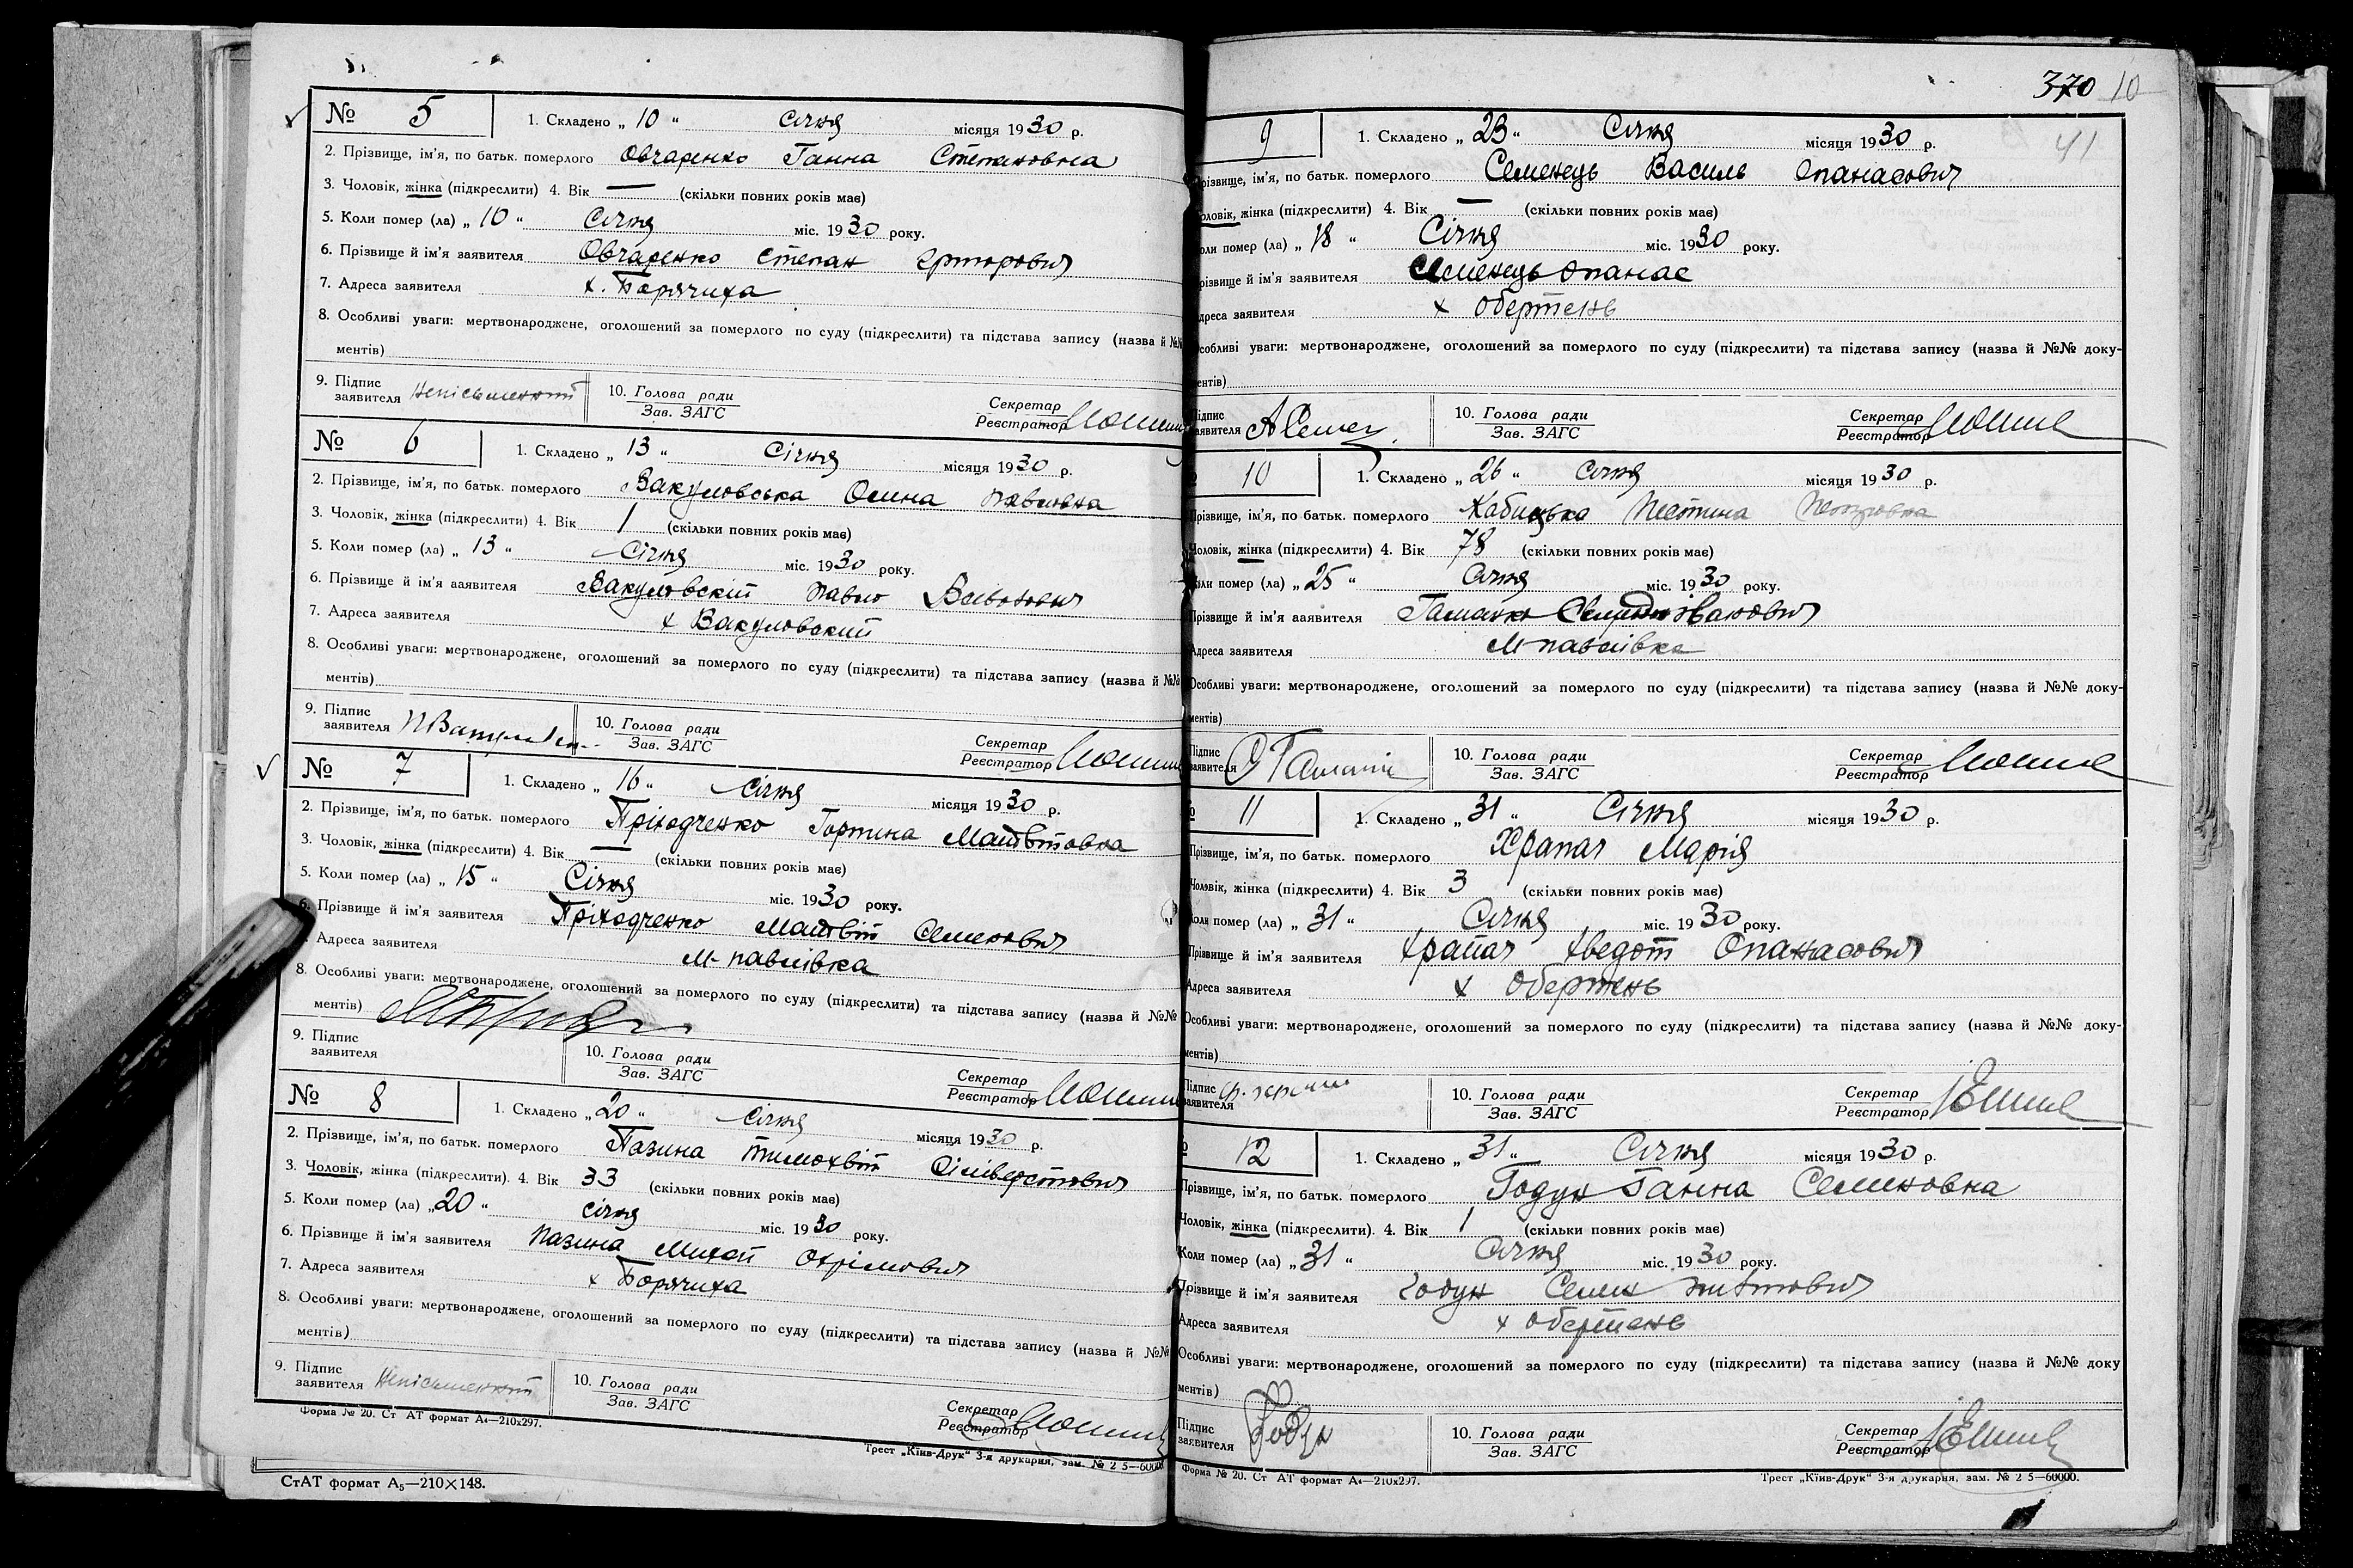 № 5 1. Складено „ 10 “ Січня місяця 1930 р.
2. Прізвище, ім'я, по батьк. померлого Овчаренко Ганна Степановна
3. Чоловік, жінка (підкреслити) 4. Вік — (скільки повних років має)
5. Коли помер (ла) „ 10 “ Січня міс. 1930 року.
6. Прізвище й ім'я заявителя Овчаренко Степан
7. Адреса заявителя х. Борячиха
8. Особливі уваги: мертвонароджене, оголошений за померлого по суду (підкреслити) та підстава запису (назва й №№
ментів)
9. Підпис заявителя Неписьменний 10. Голова ради Зав. ЗАГС Секретар Реєстратор
№ 6 1. Складено „ 13 “ Січня місяця 1930 р.
2. Прізвище, ім'я, по батьк. померлого Вакуловська Олина Павловна
3. Чоловік, жінка (підкреслити) 4. Вік 1 (скільки повних років має)
5. Коли помер (ла) „ 13 “ Січня міс. 1930 року.
6. Прізвище й ім'я заявителя Вакуловскій Павло
7. Адреса заявителя х Вакуловский
8. Особливі уваги: мертвонароджене, оголошений за померлого по суду (підкреслити) та підстава запису (назва й №№
ментів)
9. Підпис заявителя 10. Голова ради Зав. ЗАГС Секретар Реєстратор
№ 7 1. Складено „ 16 “ Січня місяця 1930 р.
2. Прізвище, ім'я, по батьк. померлого Пріходченко Горпина
3. Чоловік, жінка (підкреслити) 4. Вік — (скільки повних років має)
5. Коли помер (ла) „ 15 “ Січня міс. 1930 року.
6. Прізвище й ім'я заявителя Пріходченко Матвій Семенович
Адреса заявителя М-павлівка
8. Особливі уваги: мертвонароджене, оголошений за померлого по суду (підкреслити) та підстава запису (назва й №№
ментів)
9. Підпис заявителя 10. Голова ради Зав. ЗАГС Секретар Реєстратор
№ 8 1. Складено „ 20 “ Січня місяця 1930 р.
2. Прізвище, ім'я, по батьк. померлого Пазина Тимохвій Сілівестович
3. Чоловік, жінка (підкреслити). 4. Вік 33 (скільки повних років має)
5. Коли помер (ла) „ 20 “ січня міс. 1930 року.
6. Прізвище й ім'я заявителя Пазина Михай Охрімович
7. Адреса заявителя х Борячиха
8. Особливі уваги: мертвонароджене, оголошений за померлого по суду (підкреслити) та підстава запису (назва й №№
ментів)
9. Підпис заявителя Неписьменний 10. Голова ради Зав. ЗАГС Секретар Реєстратор
Форма № 20. Ст АТ формат А4—210х297.
Трест „Київ-Друк“ 3-я друкарня, зам. № 2 5—60000
СтАТ формат А5—210×148.
370 10
41
9 1. Складено „ 23 “ Січня місяця 1930 р.
різвище, ім'я, по батьк. померлого Семенець Василь Опанасович
оловік, жінка (підкреслити) 4. Вік — (скільки повних років має)
оли помер (ла) „ 18 “ Січня міс. 1930 року.
різвище й ім'я заявителя Семенець Опанас
дреса заявителя х Обертень
собливі уваги: мертвонароджене, оголошений за померлого по суду (підкреслити) та підстава запису (назва й №№ доку-
ентів)
ідпис аявителя 10. Голова ради Зав. ЗАГС Секретар Реєстратор
10 1. Складено „ 26 “ Січня місяця 1930 р.
Прізвище, ім'я, по батьк. померлого Кабицька Петровна
Чоловік, жінка (підкреслити) 4. Вік 78 (скільки повних років має)
оли помер (ла) „ 25 “ Січня міс. 1930 року.
Прізвище й ім'я заявителя Іванович
Адреса заявителя М-павлівка
Особливі уваги: мертвонароджене, оголошений за померлого по суду (підкреслити) та підстава запису (назва й №№ доку-
ментів)
Підпис заявителя 10. Голова ради Зав. ЗАГС Секретар Реєстратор
11 1. Складено „ 31 “ Січня місяця 1930 р.
Прізвище, ім'я, по батьк. померлого Храпач Марія
Чоловік, жінка (підкреслити) 4. Вік 3 (скільки повних років має)
Коли помер (ла) „ 31 “ Січня міс. 1930 року.
Прізвище й ім'я заявителя Храпач Хведот Опанасович
Адреса заявителя х Обертень
Особливі уваги: мертвонароджене, оголошений за померлого по суду (підкреслити) та підстава запису (назва й №№ доку-
ментів)
Підпис заявителя 10. Голова ради Зав. ЗАГС Секретар Реєстратор
12 1. Складено „ 31 “ Січня місяця 1930 р.
Прізвище, ім'я, по батьк. померлого Годун Ганна Семеновна
Чоловік, жінка (підкреслити). 4. Вік 1 (скільки повних років має)
Коли помер (ла) „ 31 “ Січня міс. 1930 року.
Прізвище й ім'я заявителя Годун Семен
Адреса заявителя х Обертень
Особливі уваги: мертвонароджене, оголошений за померлого по суду (підкреслити) та підстава запису (назва й №№ доку
ментів)
Підпис заявителя Годун 10. Голова ради Зав. ЗАГС Секретар Реєстратор
Форма № 20. Ст АТ формат А4—210х297.
Трест „Київ-Друк“ 3-я друкарня, зам. № 2 5—60000.